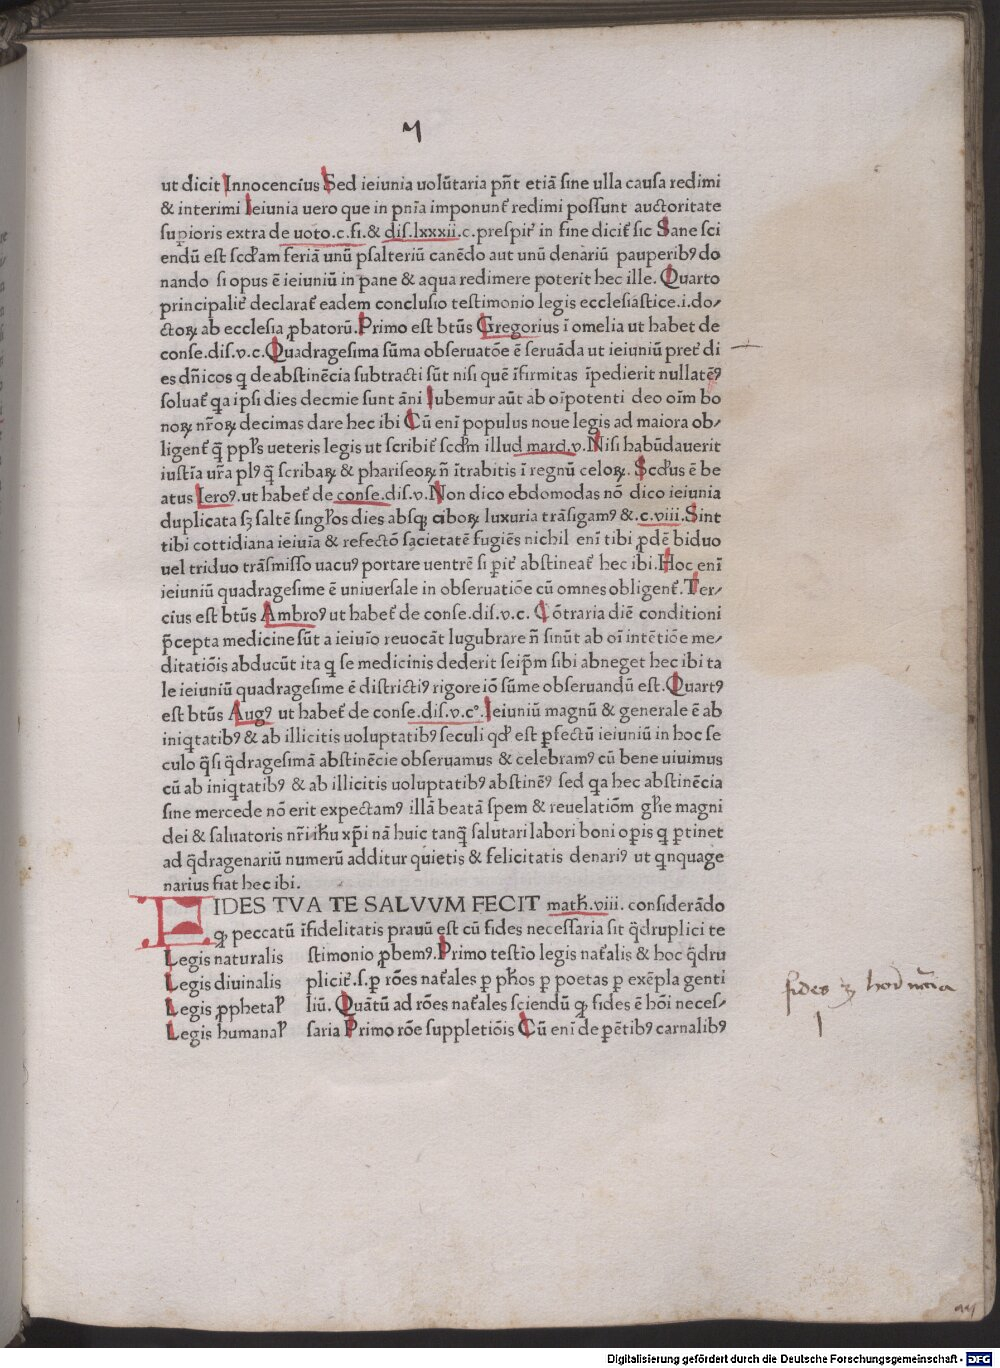 ut dicit Innocencius Sed ieiunia uolūtaria pn̄t etiā sine ulla causa redimi
& interimi Ieiunia uero que in pn̄ia imponunt᷑ redimi possunt auctoritate
supioris extra de uoto.c.fi.& dis.lxxxii.c.prespit᷑ in fine dicit᷑ sic Sane sci
endū est scd̄am feriā unū psalteriū canēdo aut unū denariū pauperibꝰ do
nando si opus ē ieiuniū in pane & aqua redimere poterit hec ille. Quarto
principalit᷑ declarat᷑ eadem conclusio testimonio legis ecclesiastice.i.do⸗
ctoꝝ ab ecclesia ꝓbatorū. Primo est btūs Gregorius ī omelia ut habet de
conse.dis.v.c. Quadragesima sūma obseruatōe ē seruāda ut ieiuniū pret᷑ di
es dn̄icos q̨ de abstinēcia subtracti sūt nisi quē īfirmitas īpedierit nullatēꝰ
soluat᷑ q̨a ipsi dies decmie sunt āni Iubemur aūt ab oīpotenti deo oīm bo
noꝝ nr̄oꝝ decimas dare hec ibi Cū enī populus noue legis ad maiora ob⸗
ligent᷑ q̄ ppl̄s ueteris legis ut scribit᷑ scd̄m illud mard.v. Nisi habūdauerit
iustīa ur̄a plꝰ q̄ scribaꝝ & phariseoꝝ n̄ ītrabitis ī regnū celoꝝ. Scd̄us ē be
atus Ieroꝰ. ut habet᷑ de conse.dis.v. Non dico ebdomodas nō dico ieiunia
duplicata sꝫ saltē singl̄os dies absq̨ ciboꝝ luxuria trāsigamꝰ &.c.viii. Sint
tibi cottidiana ieiuīa & refectō sacietatē fugiēs nichil enī tibi ꝓdē biduo
uel triduo trāsmisso uacuꝰ portare uentrē si ꝑit᷑ abstineat᷑ hec ibi. Hoc enī
ieiuniū quadragesime ē uniuersale in obseruatiōe cū omnes obligent᷑. Ter⸗
cius est btūs Ambroꝰ ut habet᷑ de conse.dis.v.c. Cōtraria diē conditioni
p̄cepta medicine sūt a ieiuīo reuocāt lugubrare n̄ sinūt ab oī intētiōe me⸗
ditatiōis abducūt ita q̨ se medicinis dederit seip̄m sibi abneget hec ibi ta
le ieiuniū quadragesime ē districtiꝰ rigore iō sūme obseruandū est. Quartꝰ
est btūs Augꝰ ut habet᷑ de conse.dis.v.cº. Ieiuniū magnū & generale ē ab
iniq̨tatibꝰ & ab illicitis uoluptatibꝰ seculi qd̄ est ꝑfectū ieiuniū in hoc se
culo q̄si q̄dragesimā abstinēcie obseruamus & celebramꝰ cū bene uiuimus
cū ab iniq̨tatibꝰ & ab illicitis uoluptatibꝰ abstinēꝰ sed q̨a hec abstinēcia
sine mercede nō erit expectamꝰ illā beatā spem & reuelatiōm gl̄ie magni
dei & saluatoris nr̄i ih̄u xp̄i nā huic tanq̄ salutari labori boni oꝑis q̨ ꝑtinet
ad q̄dragenariū numerū additur quietis & felicitatis denariꝰ ut q̨nquage
narius fiat hec ibi.
FIDES TVA TE SALVVM FECIT math̄.viii. considerādo
q̨ peccatū īfidelitatis prauū est cū fides necessaria sit q̄druplici te
Legis naturalis stimonio ꝓbemꝰ. Primo testīo legis nat᷑alis & hoc q̄dru
Legis diuinalis plicit᷑.s.ꝑ rōes nat᷑ales ꝑ ph̄os ꝑ poetas ꝑ exēpla genti
Legis ꝓphetal᷑ liū. Quātū ad rōes nat᷑ales sciendū q̨ fides ē hōi neces⸗
Legis humanal᷑ saria Primo rōe suppletiōis Cū enī de ꝑētibꝰ carnalibꝰ
fides